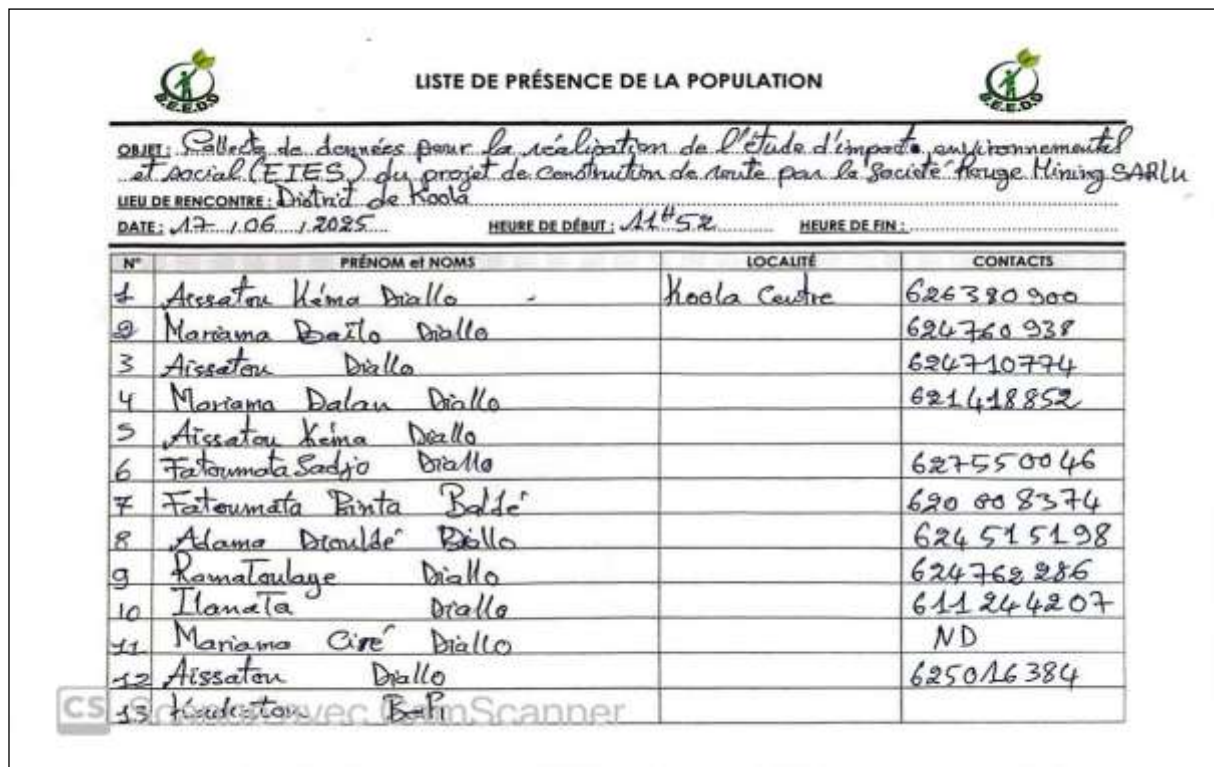 LISTE DE PRÉSENCE DE LA POPULATION
B.E.E.D.S
B.E.E.D.S
OBJET : Collecte de données pour la réalisation de l'étude d'impact environnemental
et social (EIES) du projet de construction de route par la Société Rouge Mining SARLu
LIEU DE RENCONTRE : District de Koola
DATE : 17 / 06 / 2025 HEURE DE DÉBUT : 11H52 HEURE DE FIN :
N° PRÉNOM et NOMS LOCALITÉ CONTACTS
1 Aissatou Kéma Diallo Koola Centre 626380900
2 Mariama Baïlo Diallo 624760938
3 Aissatou Diallo 624710774
4 Mariama Dalan Diallo 621418852
5 Aissatou Kéma Diallo
6 Fatoumata Sadjo Diallo 627550046
7 Fatoumata Binta Baldé 620 00 8374
8 Adama Diouldé Diallo 624 515198
9 Ramatoulaye Diallo 624762286
10 Diallo 611 244207
11 Mariama Ciré Diallo ND
12 Aissatou Diallo 625016384
13
CS Scanné avec CamScanner